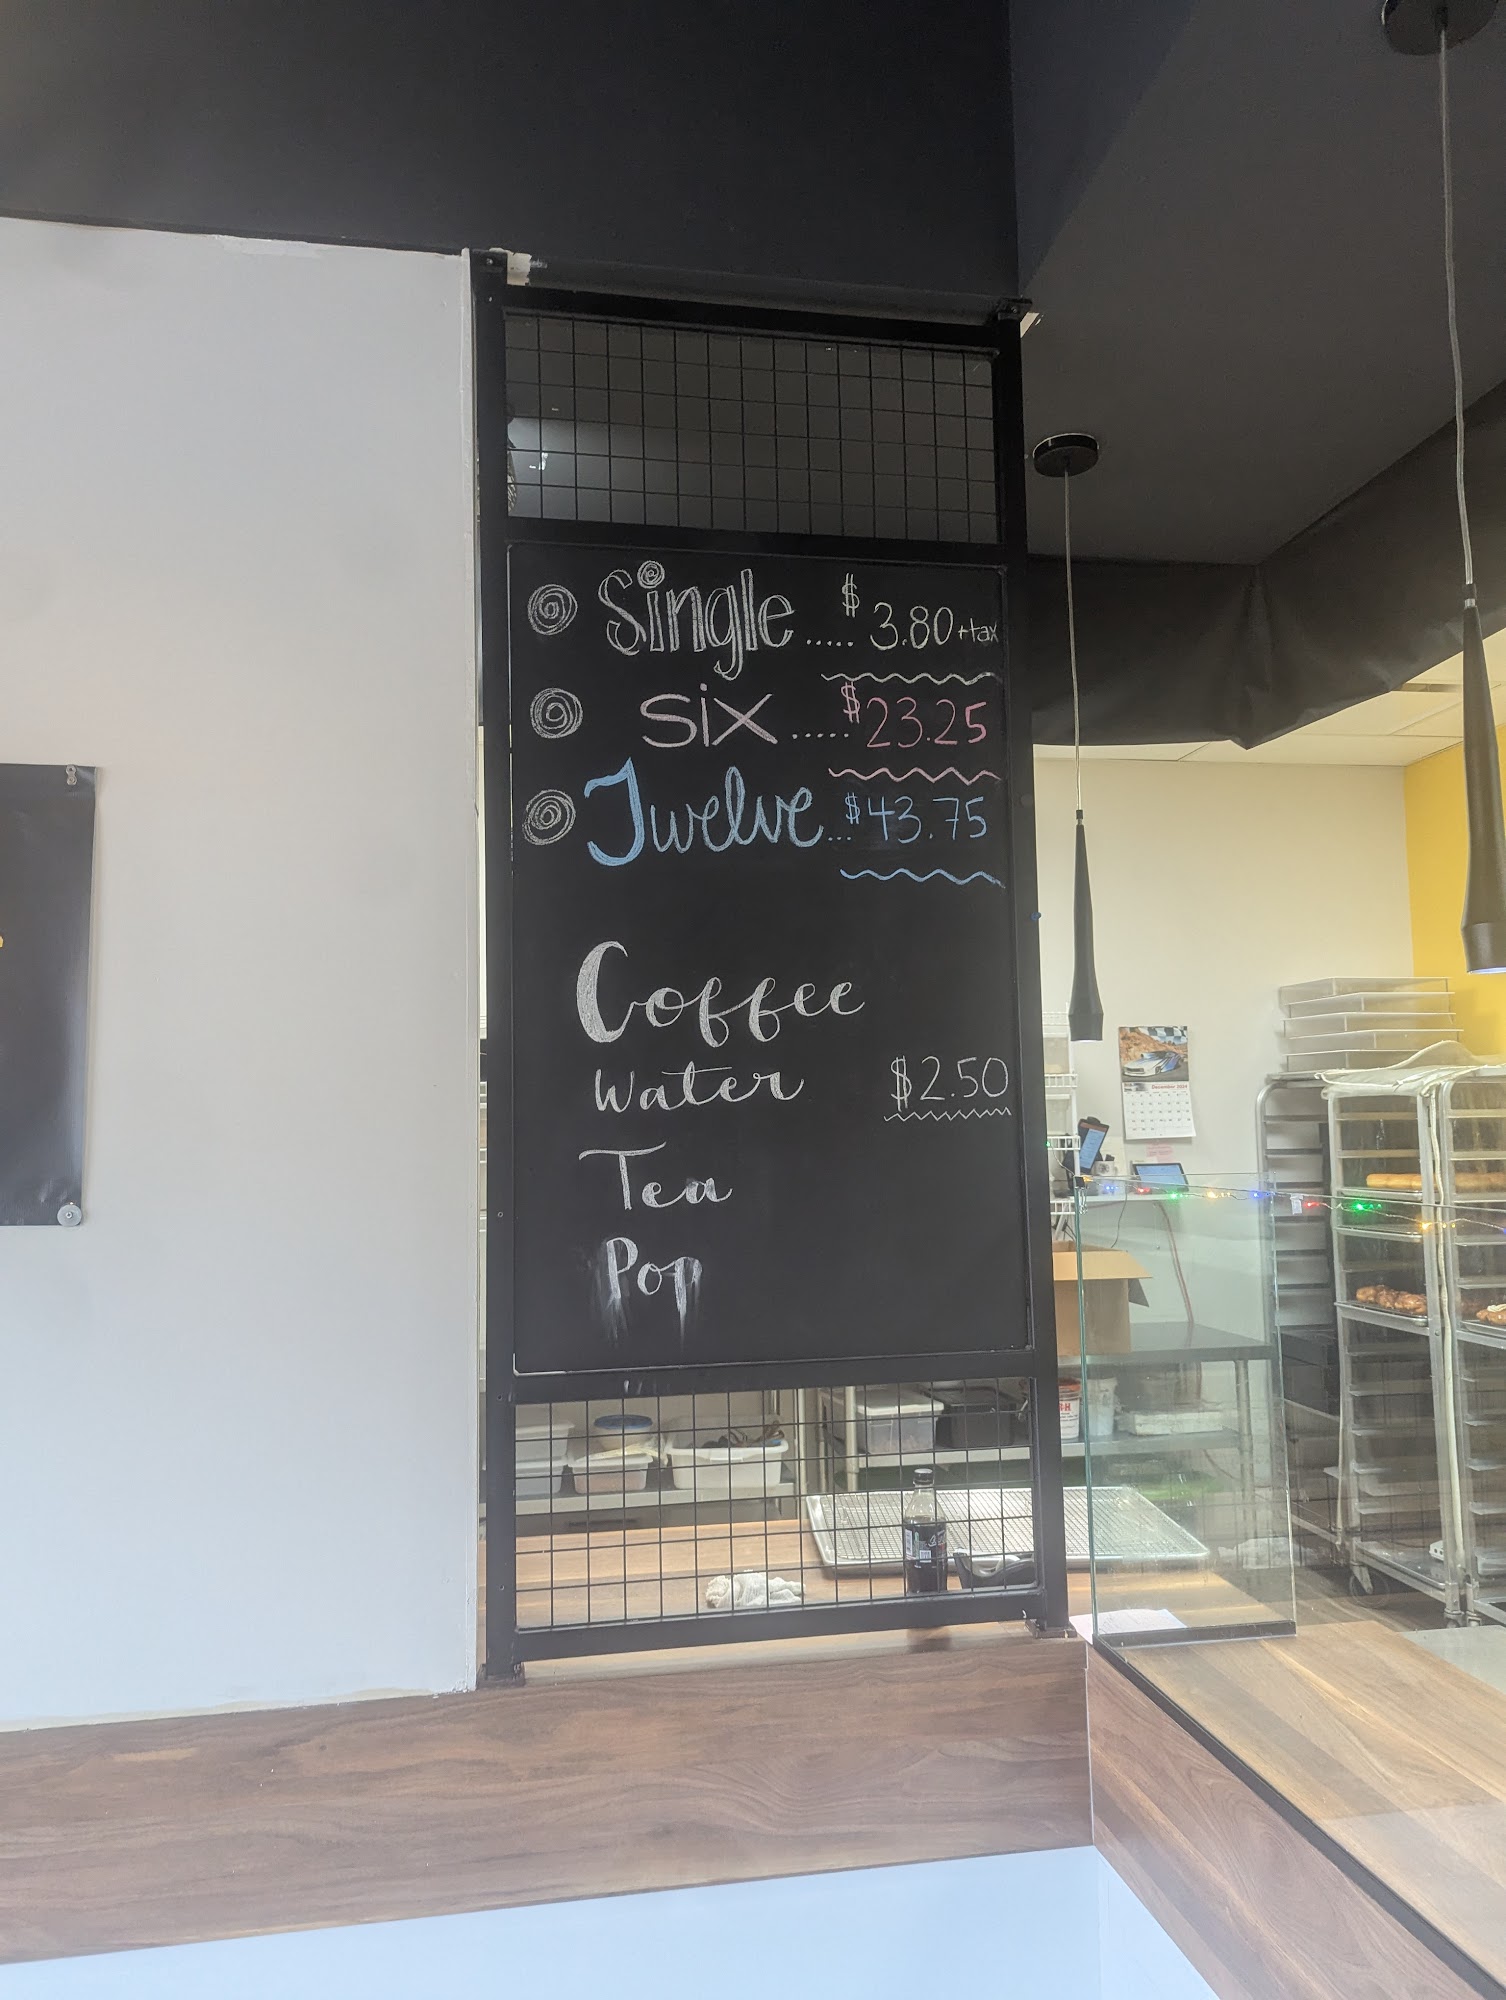 Single ..... $3.80 + tax
Six ..... $23.25
Twelve ... $43.75
Coffee
Water $2.50
Tea
Pop
December 2024